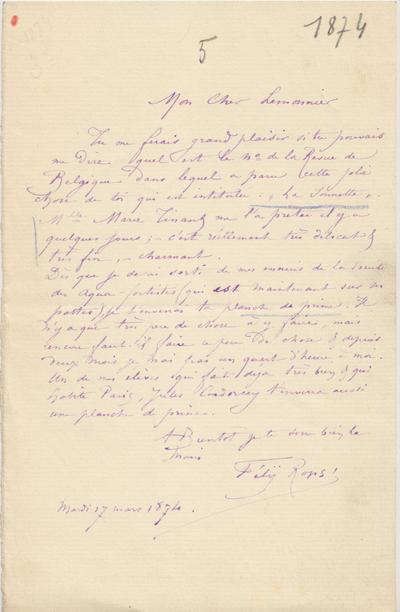 1874
5
Mon Cher Lemonnier
Tu me ferais grand plaisir si tu pouvais
me dire quel est le No de la Revue de
Belgique dans lequel a paru cette jolie
chose de toi qui est intitulée "La Sonnette"
Mlle Marie me l'a prêtée il y a
quelques jours; – c'est réellement très délicat &
très fin, – charmant.
Dès que je serai sorti de mes ennuis de la Société
des Aqua-fortistes (qui est maintenant sur ses
pattes) je t'enverrai ta planche de prime. Il
n'y a que très peu de chose à y faire, mais
encore faut-il faire ce peu de chose & depuis
deux mois je n'ai pas un quart d'heure à moi.
Un de mes élèves qui fait déjà très bien & qui
habite Paris, Jules t'enverra aussi
une planche de prime.
A Bientôt je te serre bien la
main
Fély Rops
Mardi 17 mars 1874.